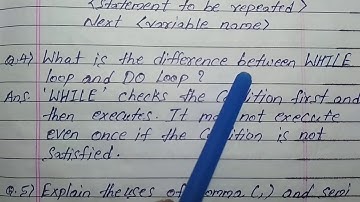 <statement to be repeated>
Next <variable name>
Q.4) What is the difference between WHILE
loop and DO Loop?
Ans. 'WHILE' checks the condition first and
then executes. It may not execute
even once if the condition is not
satisfied.
Q.5) Explain the uses of comma (,) and semi